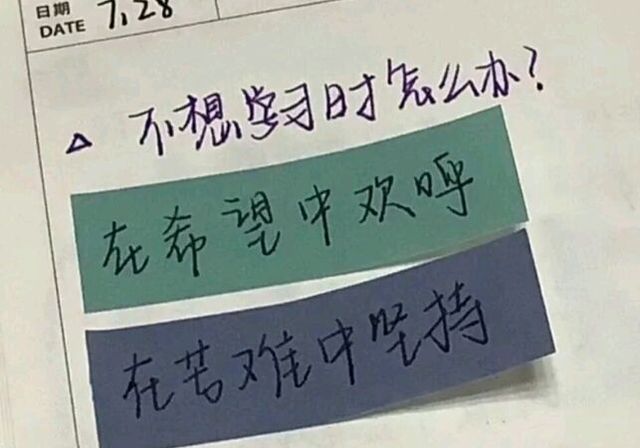 日期
DATE 7.28
△ 不想学习时怎么办？
在希望中欢呼
在苦难中坚持